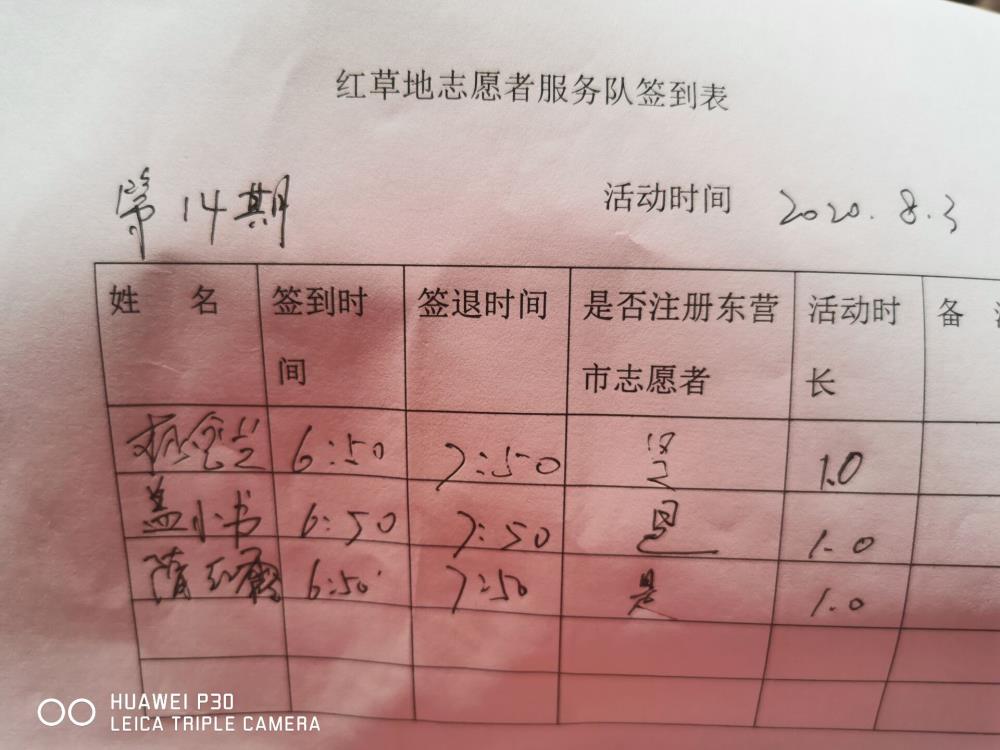 红草地志愿者服务队签到表
第14期 活动时间 2020.8.3
姓 名 签到时间 签退时间 是否注册东营市志愿者 活动时长 备
6:50 7:50 是 1.0
盖小书 6:50 7:50 是 1.0
隋红霞 6:50 7:50 是 1.0
HUAWEI P30
LEICA TRIPLE CAMERA